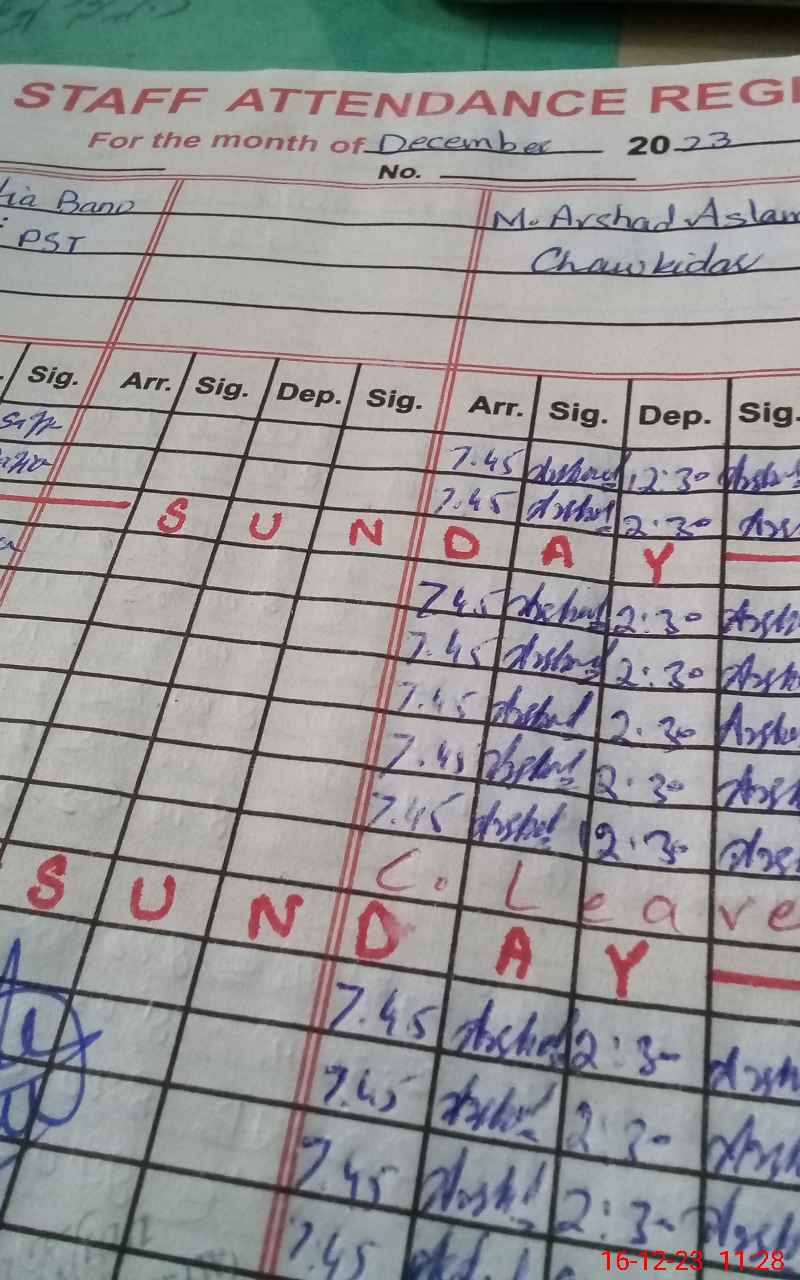 STAFF ATTENDANCE REGI
For the month of December 2023
No.
Bano M. Arshad Aslam
PST Chawkidar
Sig. Arr. Sig. Dep. Sig. Arr. Sig. Dep. Sig.
7.45 Arshad 2:30 Arshad
7.45 Arshad 2:30 Ars
S U N D A Y
7.45 Arshad 2:30 Arsh
7.45 Arshad 2:30 Arsh
7.45 Arshad 2:30 Arsha
7.45 Arshad 2:30 Arsh
7.45 Arshad 2:30 Ars
C. Leave
S U N D A Y
7.45 Arshad 2:30 Arsh
7.45 Arshad 2:30 Arsh
7.45 Arshad 2:30 Arsh
7.45
16-12-23 11:28